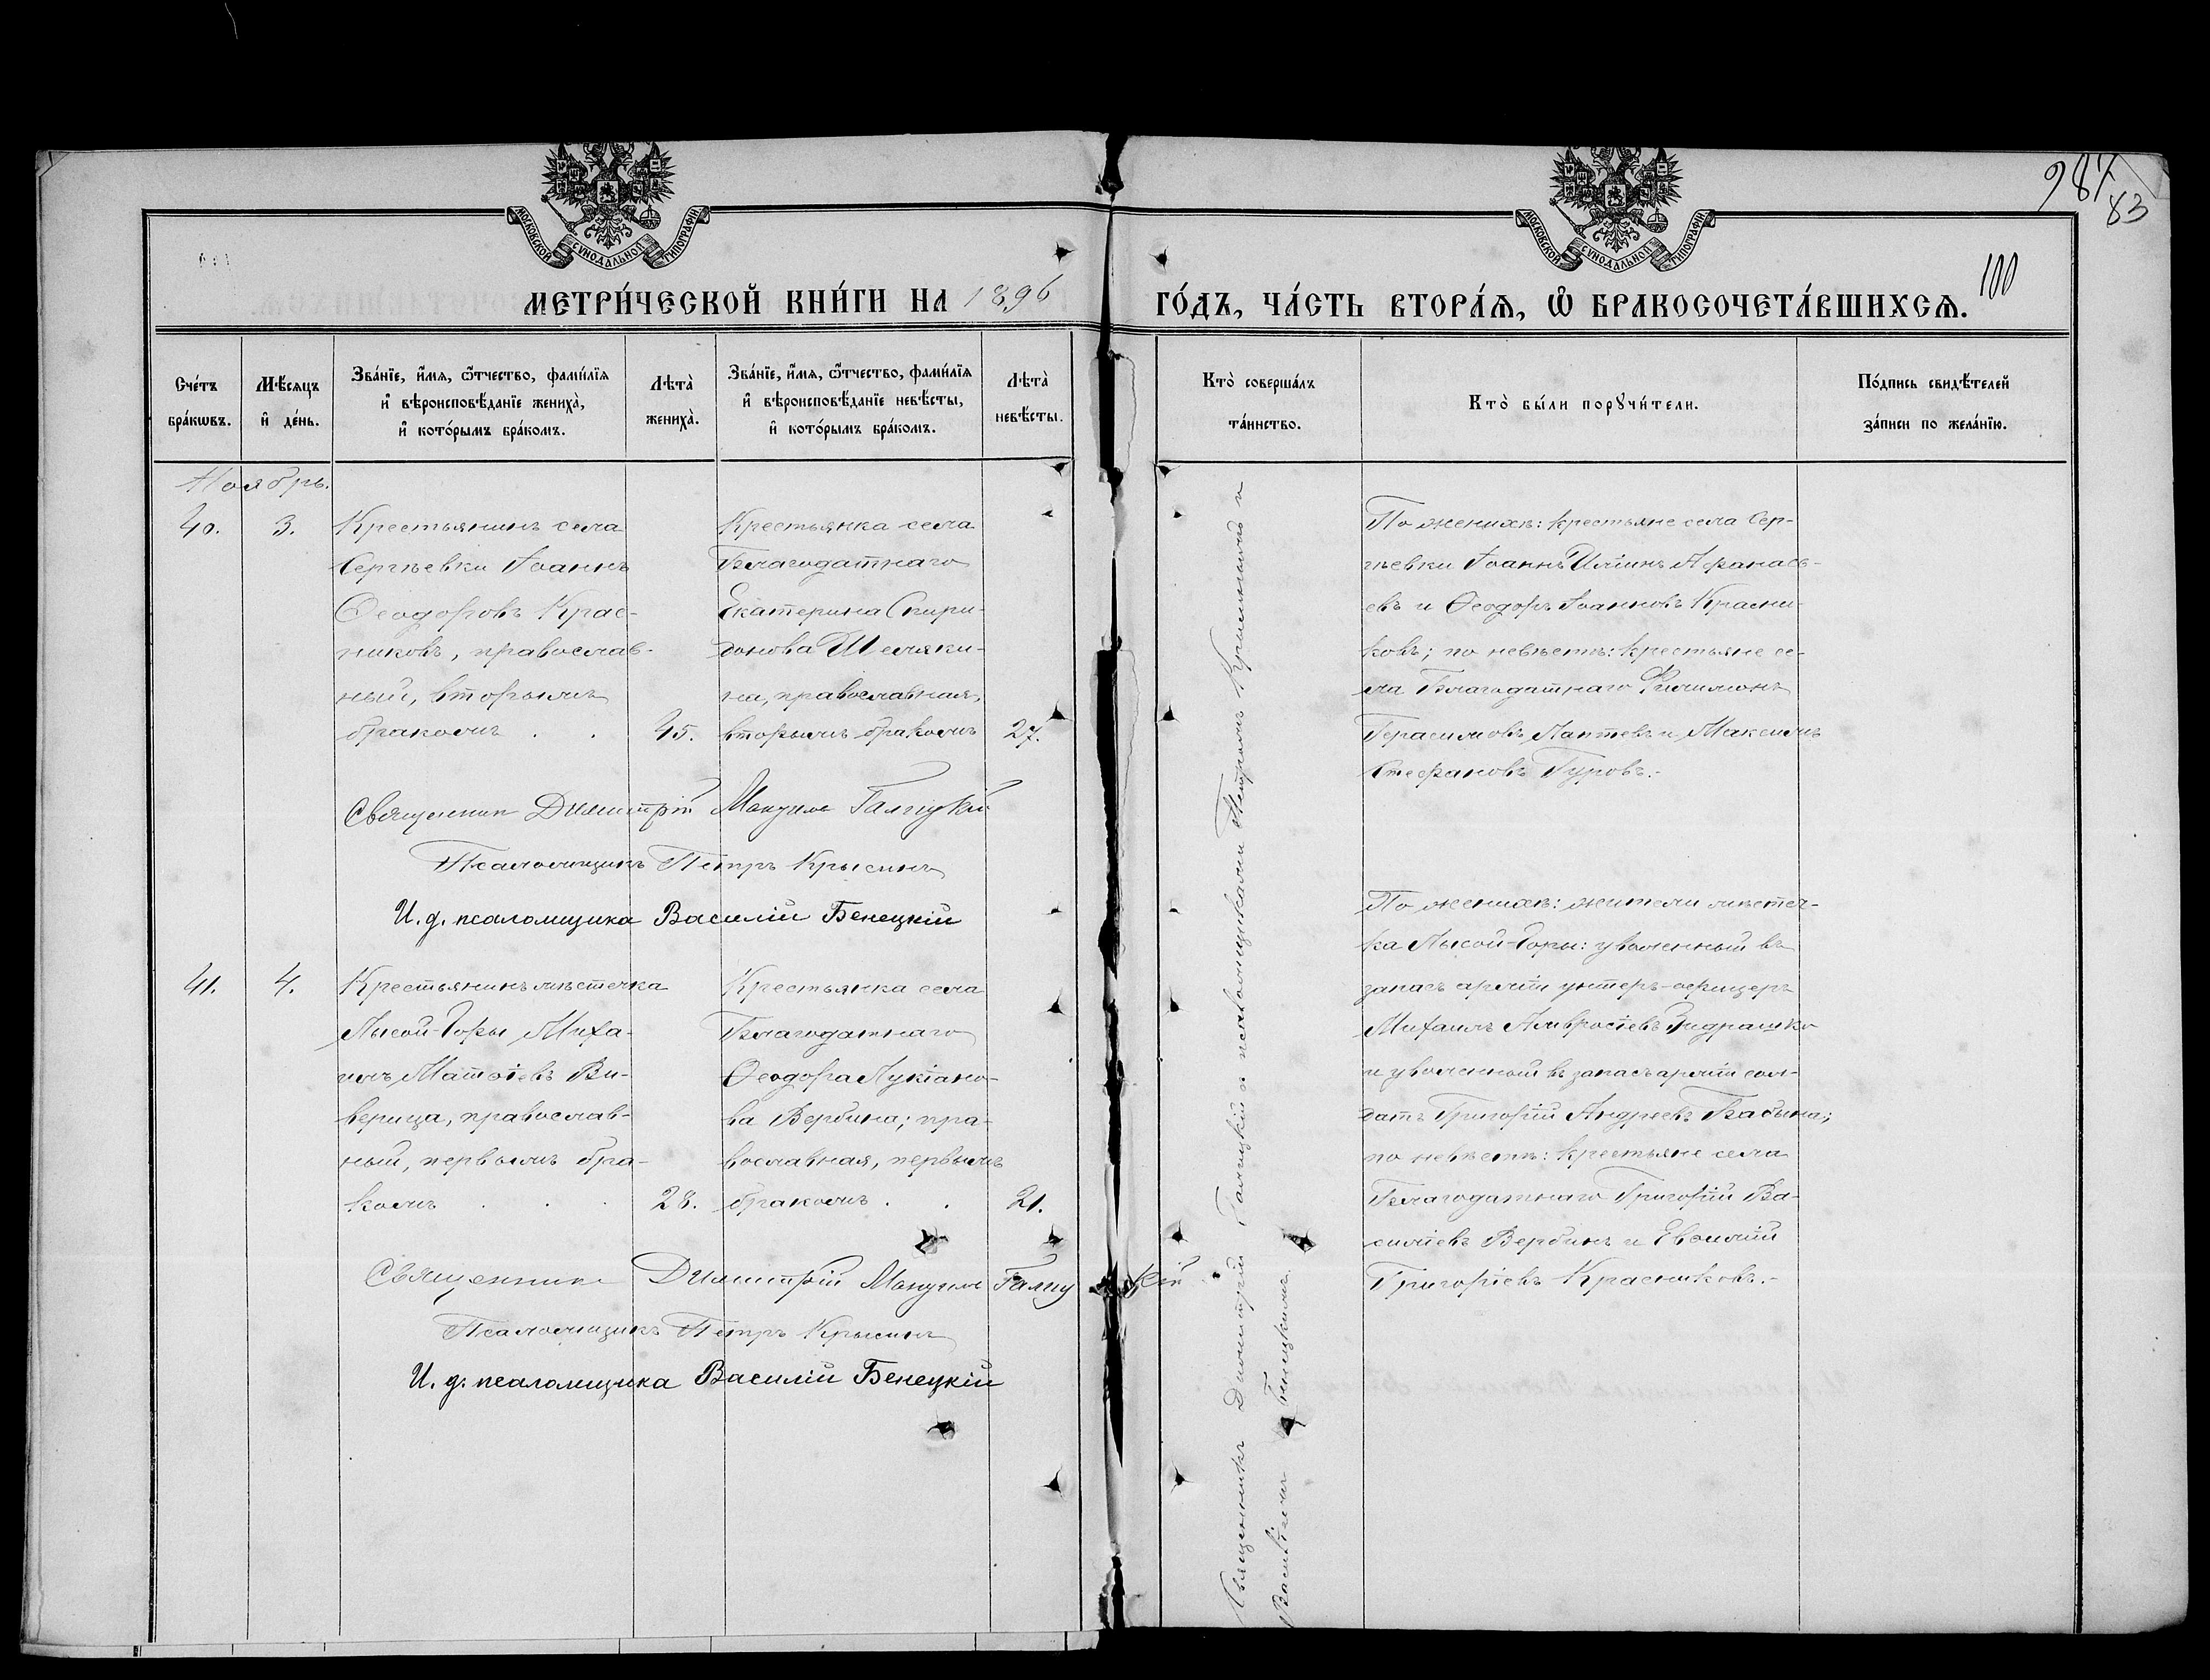 987
83
100
МОСКОВСКОЙ СѴНОДАЛЬНОЙ ТИПОГРАФІИ
МОСКОВСКОЙ СѴНОДАЛЬНОЙ ТИПОГРАФІИ
МЕТРИ́ЧЕСКОЙ КНИ́ГИ НА 1896
ГО́ДЪ, ЧА́СТЬ ВТОРА́Ѧ, Ѡ҆ БРАКОСОЧЕТА́ВШИХСѦ.
Сче́тъ
бра́кѡвъ.
Мѣ́сяцъ
и҆ де́нь.
Зва́нїе, и҆́мѧ, ѻ҆́тчество, фами́лїѧ
и҆ вѣроисповѣ́данїе жениха̀,
и҆ кото́рымъ бра́комъ.
Лѣта̀
жениха̀.
Зва́нїе, и҆́мѧ, ѻ҆́тчество, фами́лїѧ
и҆ вѣроисповѣ́данїе невѣ́сты,
и҆ кото́рымъ бра́комъ.
Лѣта̀
невѣ́сты.
Кто̀ соверша́лъ
та́инство.
Кто̀ бы́ли порꙋчи́тели.
По́дпись свидѣ́телей
за́писи по жела́нїю.
Ноябрь.
40.
3.
Крестьянинъ села
Сергѣевки Іоаннъ
Ѳеодоровъ Крас-
никовъ, православ-
ный, вторымъ
бракомъ . .
45.
Крестьянка села
Благодатнаго
Екатерина Спири-
донова Шемяки-
на, православная,
вторымъ бракомъ
27.
Священникъ Димитрій Галицкій и псаломщиками Петромъ Крысинымъ и
Василіемъ Бенецкимъ.
По женихѣ: крестьяне села Сер-
гѣевки Іоаннъ Илiинъ Афанась-
евъ и Ѳеодоръ Іоанновъ Красни-
ковъ; по невѣстѣ: крестьяне се-
ла Благодатнаго Филимонъ
Герасимовъ Лаптевъ и Максимъ
Стефановъ Гуровъ.-
Священник Димитрій Галицкій
Псаломщикъ Петръ Крысинъ
И. д. псаломщика Василій Бенецкій
41.
4.
Крестьянинъ мѣстечка
Лысой-Горы Миха-
илъ Матѳіевъ Ви-
верица, православ-
ный, первымъ бра-
комъ . . .
28.
Крестьянка села
Благодатнаго
Ѳеодора Лукіано-
ва Вербина; пра-
вославная, первымъ
бракомъ . .
21.
По женихѣ: жители мѣстеч-
ка Лысой-Горы: уволенный въ
запасъ арміи унтеръ-офицеръ
Михаилъ Амвросіевъ
и уволенный въ запасъ арміи сол-
датъ Григорій Андреевъ Бабына;
по невѣстѣ: крестьяне села
Благодатнаго Григорій Ва-
силіевъ Вербинъ и Евѳимій
Григоріевъ Красниковъ.-
Священник Димитрій Галицкій
Псаломщикъ Петръ Крысинъ
И. д. псаломщика Василій Бенецкій